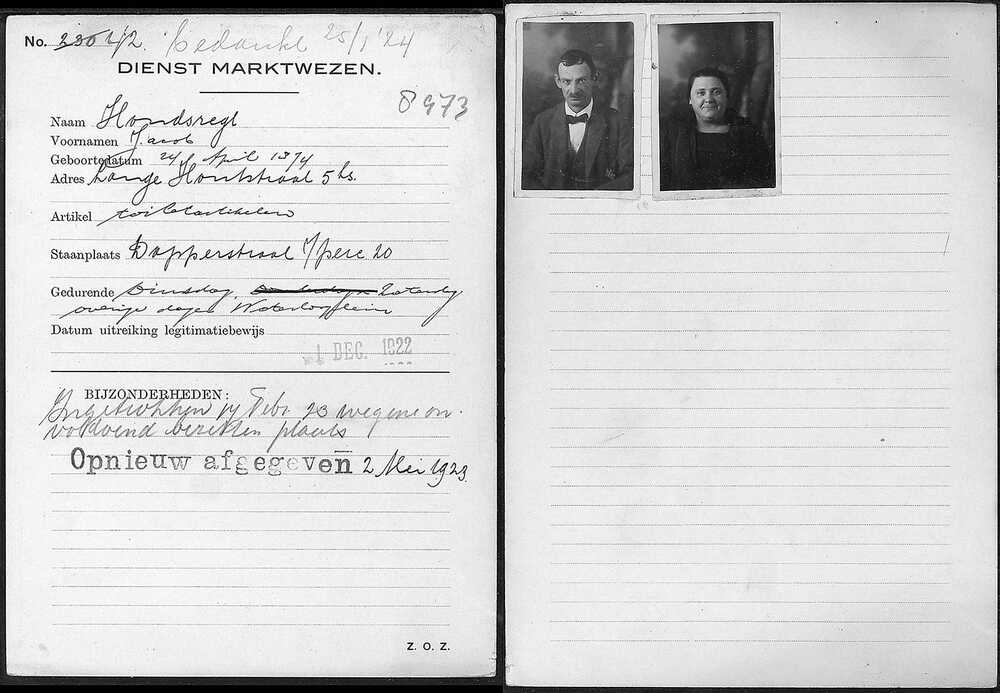 No. 2306 4/2. Bedankt 25/1 '24
DIENST MARKTWEZEN.
8973
Naam Hondsregt
Voornamen Jacob
Geboortedatum 24 April 1874
Adres Lange Houtstraat 5 hs.
Artikel toiletartikelen
Staanplaats Dapperstraat 1/perc 20
Gedurende Dinsdag Zaterdag
overige dagen Waterlooplein
Datum uitreiking legitimatiebewijs
-1 DEC. 1922
BIJZONDERHEDEN:
Ingetrokken Febr 23 wegens on-
voldoend bezetten plaats
Opnieuw afgegeven 2 Mei 1923
Z. O. Z.